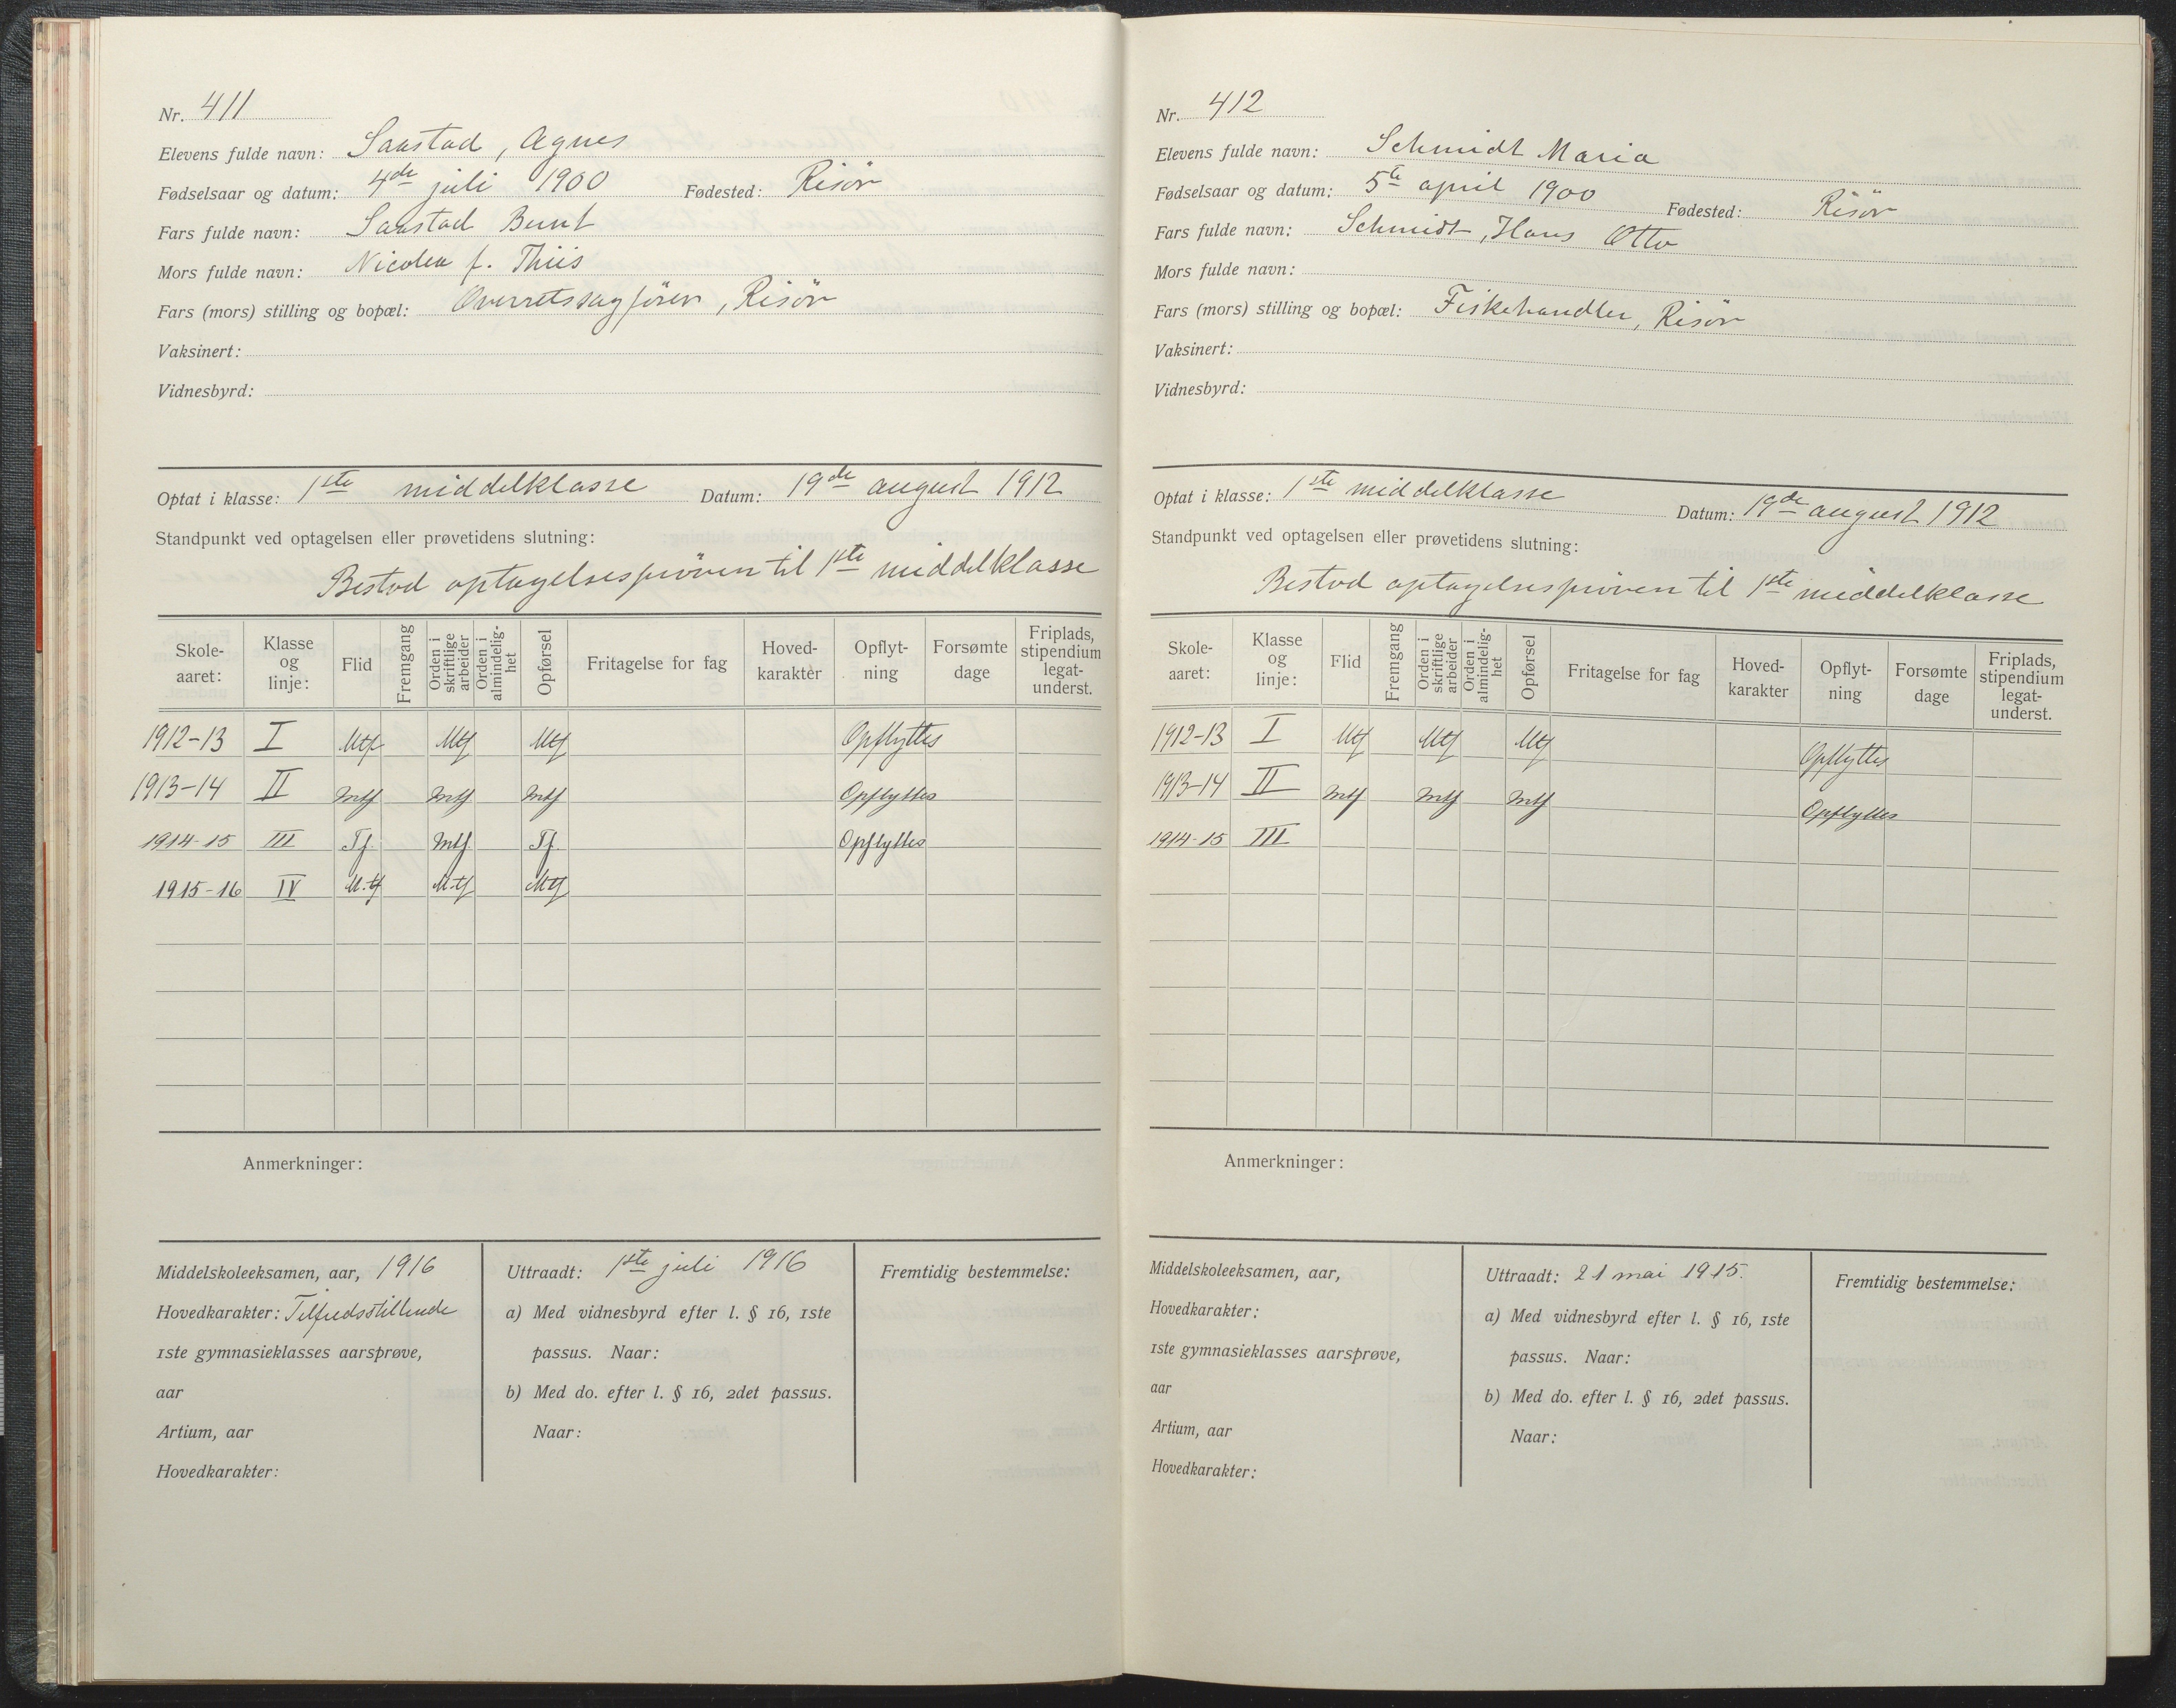 Nr. 411
Elevens fulde navn: Saastad, Agnes
Fødselsaar og datum: 4de juli 1900 Fødested: Risör
Fars fulde navn: Saastad Bernt
Mors fulde navn: Nicolea f. Thiis
Fars (mors) stilling og bopæl: Overretssagförer, Risör
Vaksinert:
Vidnesbyrd:
Optat i klasse: 1ste middelklasse Datum: 19de august 1912
Standpunkt ved optagelsen eller prøvetidens slutning:
Bestod optagelsespröven til 1ste middelklasse
Skole-aaret: Klasse og linje: Flid Fremgang Orden i skriftlige arbeider Orden i almindelig-het Opførsel Fritagelse for fag Hoved-karaktèr Opflyt-ning Forsømte dage Friplads, stipendium legat-underst.
1912-13 I Mtf Mtf Mtf Opflyttes
1913-14 II Mtf Mtf Mtf Opflyttes
1914-15 III Tf. Mtf Tf. Opflyttes
1915-16 IV M.tf M.tf Mtf
Anmerkninger:
Middelskoleeksamen, aar, 1916
Hovedkarakter: Tilfredsstillende
1ste gymnasieklasses aarsprøve,
aar
Artium, aar
Hovedkarakter:
Uttraadt: 1ste juli 1916
a) Med vidnesbyrd efter l. § 16, 1ste
passus. Naar:
b) Med do. efter l. § 16, 2det passus.
Naar:
Fremtidig bestemmelse:
Nr. 412
Elevens fulde navn: Schmidt Maria
Fødselsaar og datum: 5te april 1900 Fødested: Risör
Fars fulde navn: Schmidt, Hans Otto
Mors fulde navn:
Fars (mors) stilling og bopæl: Fiskehandler, Risör
Vaksinert:
Vidnesbyrd:
Optat i klasse: 1ste middelklasse Datum: 19de august 1912
Standpunkt ved optagelsen eller prøvetidens slutning:
Bestod optagelsespröven til 1ste middelklasse
Skole-aaret: Klasse og linje: Flid Fremgang Orden i skriftlige arbeider Orden i almindelig-het Opførsel Fritagelse for fag Hoved-karakter Opflyt-ning Forsømte dage Friplads, stipendium legat-underst.
1912-13 I Mtf Mtf Mtf Opflyttes
1913-14 II Mtf Mtf Mtf Opflyttes
1914-15 III
Anmerkninger:
Middelskoleeksamen, aar,
Hovedkarakter:
1ste gymnasieklasses aarsprøve,
aar
Artium, aar
Hovedkarakter:
Uttraadt: 21 mai 1915.
a) Med vidnesbyrd efter l. § 16, 1ste
passus. Naar:
b) Med do. efter l. § 16, 2det passus.
Naar:
Fremtidig bestemmelse: